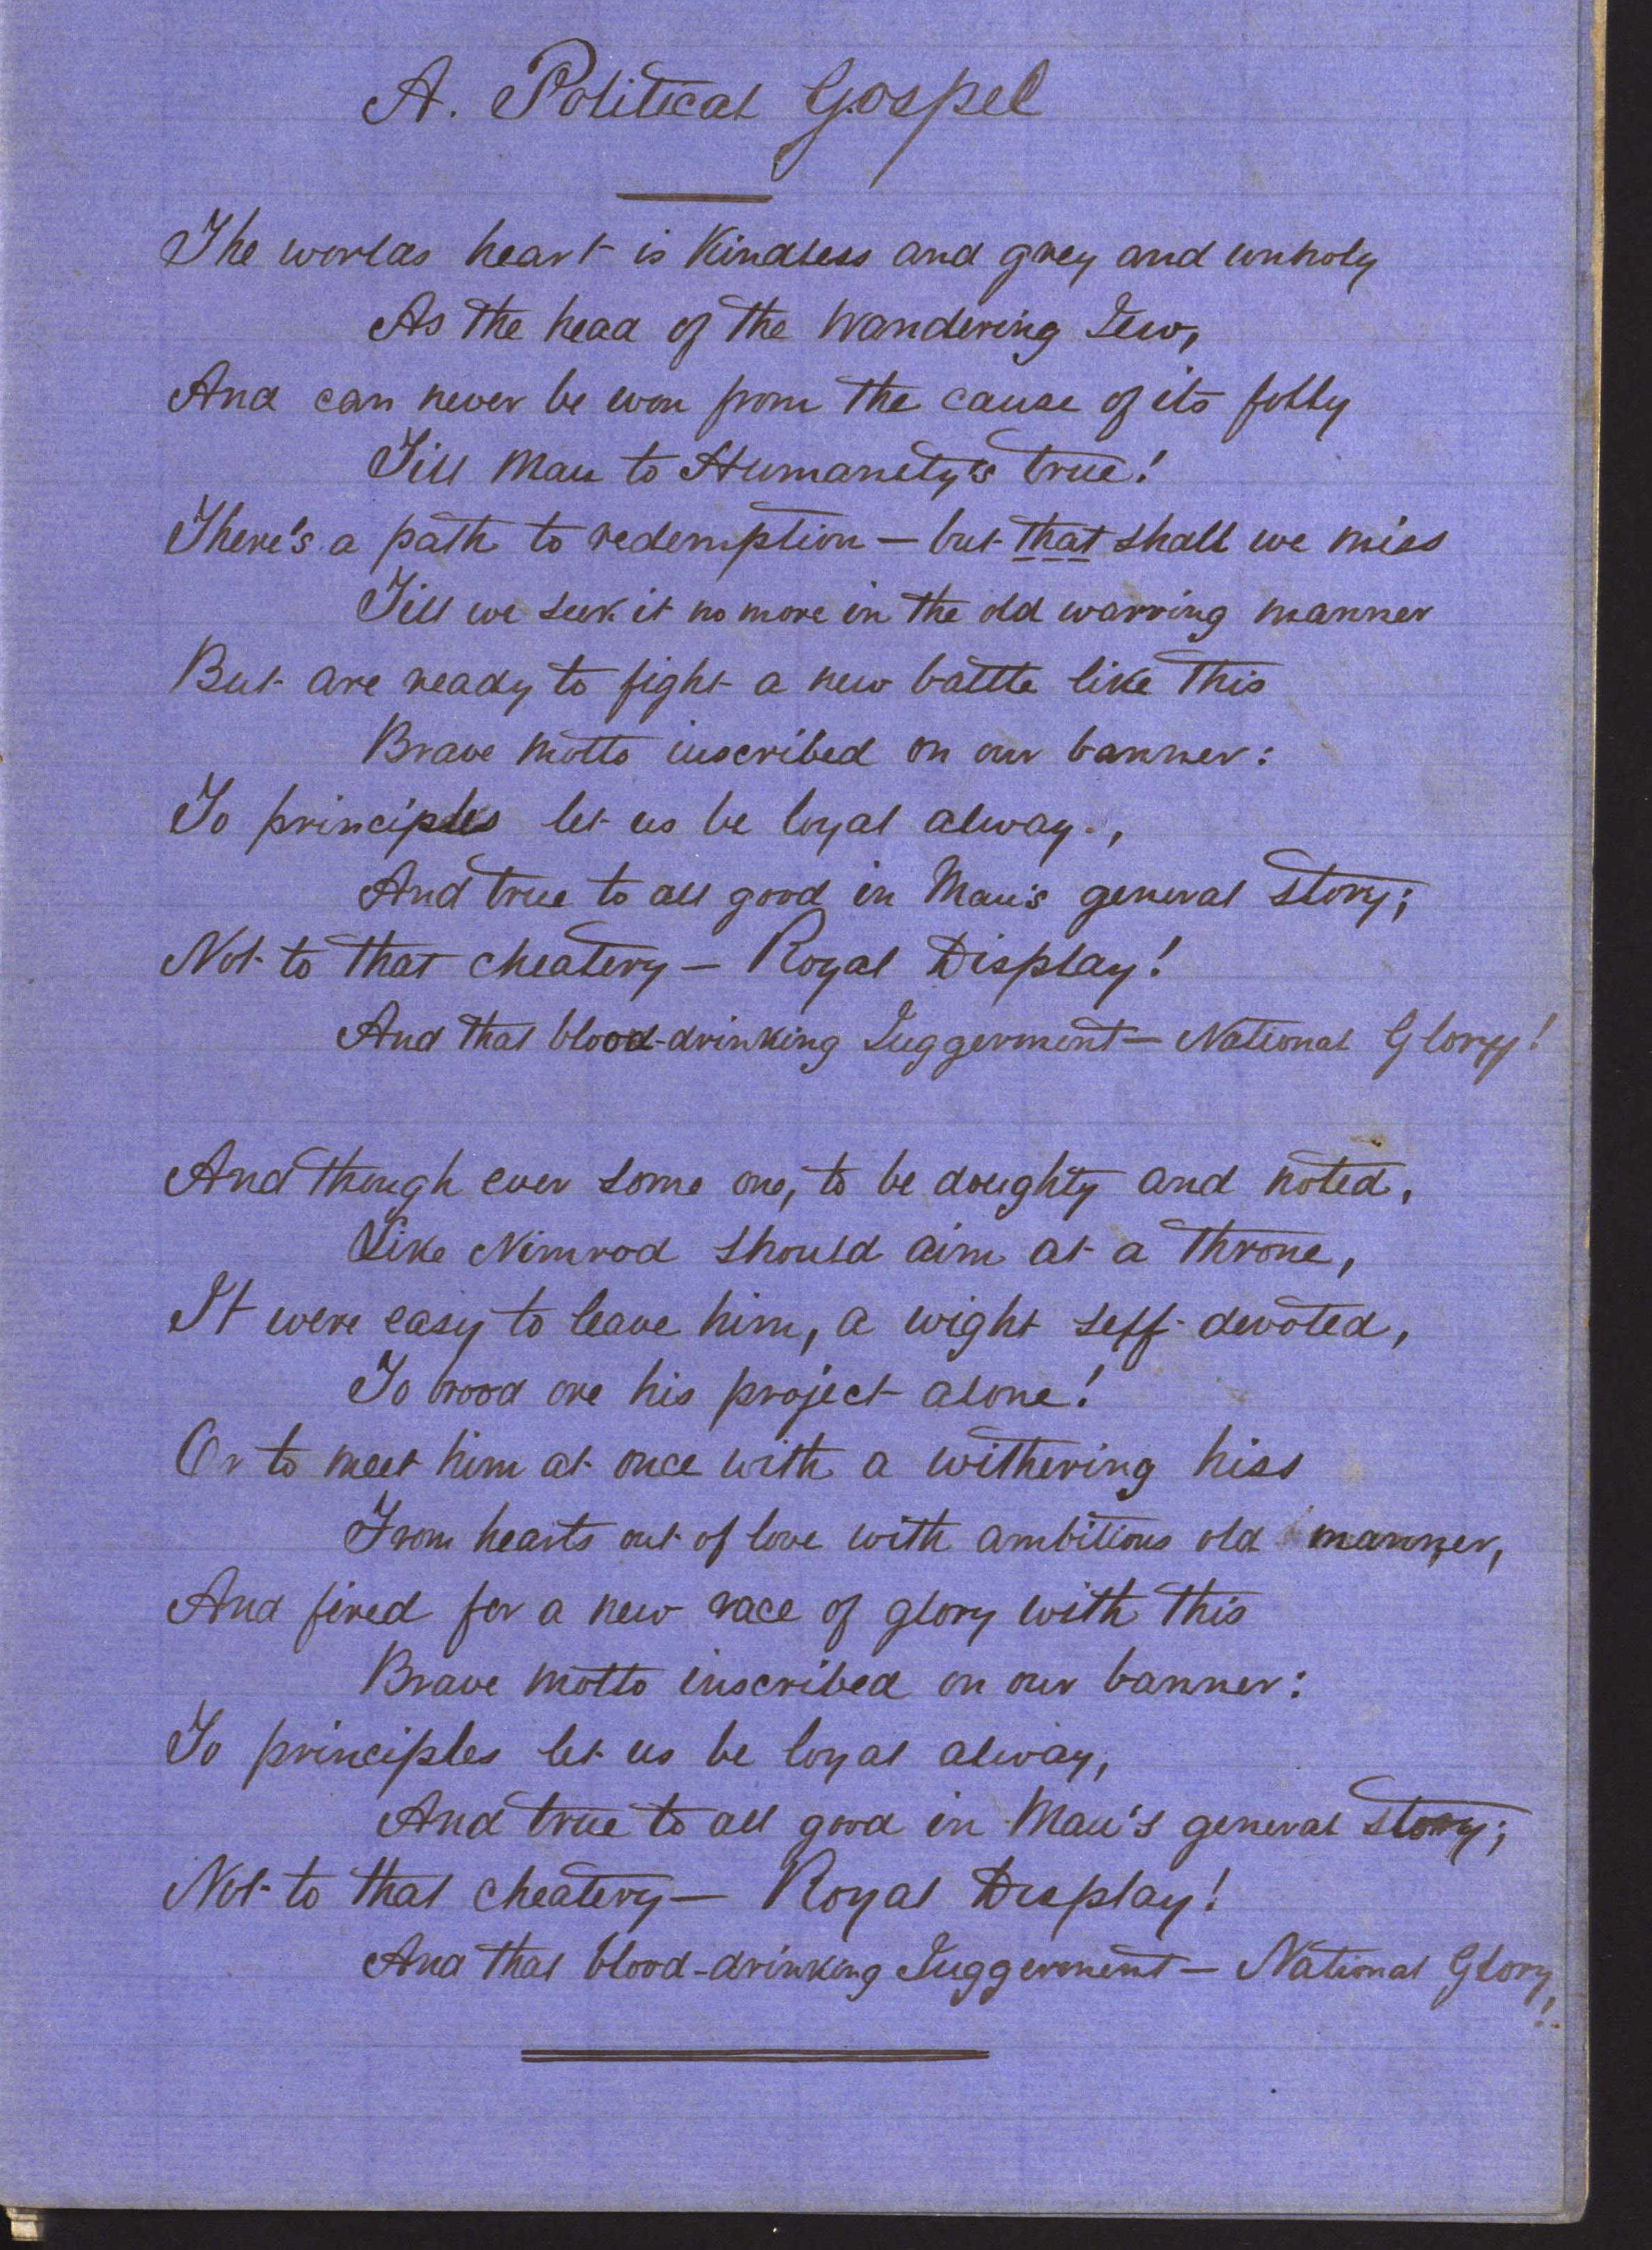 A. Political Gospel
The worlds heart is Kindless and grey and unholy
As the head of the Wandering Jew,
And can never be won from the cause of its folly
Till Man to Humanety's true!
There's a path to redemption — but that shall we miss
Till we seek it no more in the old warring manner
But are ready to fight a new battle like this
Brave motto inscribed on our banner:
To principles let us be loyal alway.,
And true to all good in Man's general story;
Not to that cheatery — Royal Display!
And that blood-drinking Juggernaut — National Glory!
And though ever some one, to be doughty and noted,
Like Nimrod should aim at a throne,
It were easy to leave him, a wight self-devoted,
To brood ore his project alone!
Or to meet him at once with a withering hiss
From hearts out of love with ambitious old manner,
And fired for a new race of glory with this
Brave motto inscribed on our banner:
To principles let us be loyal alway,
And true to all good in Man's general story;
Not to that cheatery — Royal Display!
And that blood-drinking Juggernaut — National Glory!